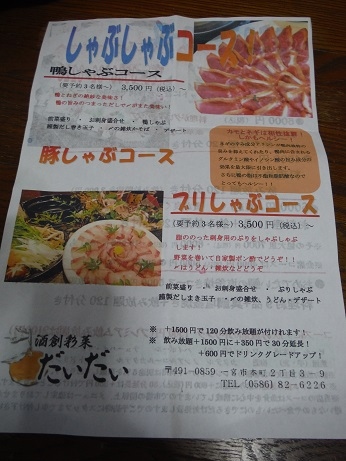 しゃぶしゃぶコース
鴨しゃぶコース
(要予約3名様~) 3,500円(税込)~
鴨とねぎの絶妙な美味さ!
鴨の旨みのつまっただしで〆がまた美味い!
前菜盛り ・ お刺身盛合せ ・ 鴨しゃぶ
鶏製だし巻き玉子 ・ 〆の雑炊かそば ・ デザート
カモとネギは相性抜群
しかもヘルシー!!
とってもヘルシー!!
豚しゃぶコース
ブリしゃぶコース
(要予約3名様~) 3,500円(税込)~
脂ののった刺身用のぶりをしゃぶしゃぶ
します!
野菜を巻いて自家製ポン酢でどうぞ!!
〆はうどん・雑炊などどうぞ
前菜盛り ・ お刺身盛合せ ・ ぶりしゃぶ
だし巻き玉子 ・ 〆の雑炊、うどん・デザート
※ +1500円で120分飲み放題が付けれます!
※ 飲み放題+1500円に+350円で30分延長!
+600円でドリンクグレードアップ!
酒創彩菜
だいだい
〒491-0859 一宮市本町2丁目3-9
TEL (0586) 82-6226